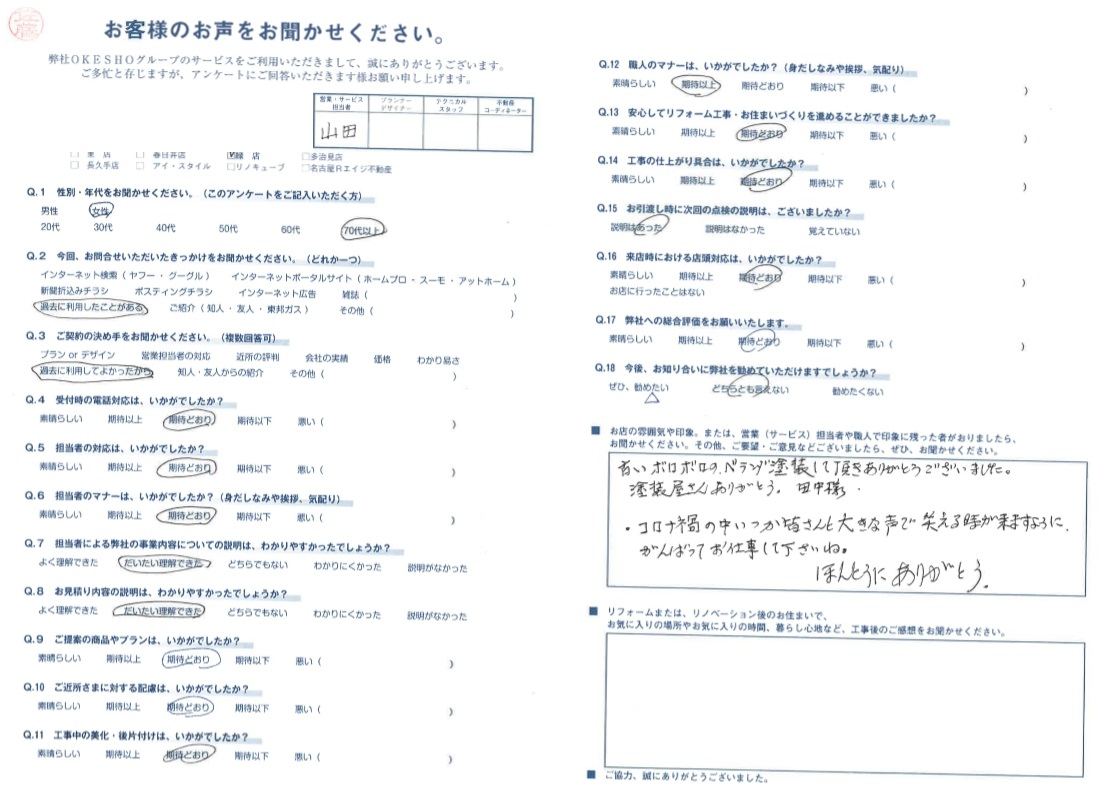 佐藤
お客様のお声をお聞かせください。
弊社OKESHOグループのサービスをご利用いただきまして、誠にありがとうございます。
ご多忙と存じますが、アンケートにご回答いただきます様お願い申し上げます。
営業・サービス担当者 プランナーデザイナー テクニカルスタッフ 不動産コーディネーター
山田
東 店 春日井店 緑 店 多治見店
長久手店 アイ・スタイル リノキューブ 名古屋Rエイジ不動産
Q.1 性別・年代をお聞かせください。（このアンケートをご記入いただく方）
男性 女性
20代 30代 40代 50代 60代 70代以上
Q.2 今回、お問合せいただいたきっかけをお聞かせください。（どれか一つ）
インターネット検索（ ヤフー ・ グーグル ） インターネットポータルサイト（ ホームプロ ・ スーモ ・ アットホーム ）
新聞折込みチラシ ポスティングチラシ インターネット広告 雑誌（ ）
過去に利用したことがある ご紹介（ 知人 ・ 友人 ・ 東邦ガス ） その他（ ）
Q.3 ご契約の決め手をお聞かせください。（複数回答可）
プラン or デザイン 営業担当者の対応 近所の評判 会社の実績 価格 わかり易さ
過去に利用してよかったから 知人・友人からの紹介 その他（ ）
Q.4 受付時の電話対応は、いかがでしたか？
素晴らしい 期待以上 期待どおり 期待以下 悪い（ ）
Q.5 担当者の対応は、いかがでしたか？
素晴らしい 期待以上 期待どおり 期待以下 悪い（ ）
Q.6 担当者のマナーは、いかがでしたか？（身だしなみや挨拶、気配り）
素晴らしい 期待以上 期待どおり 期待以下 悪い（ ）
Q.7 担当者による弊社の事業内容についての説明は、わかりやすかったでしょうか？
よく理解できた だいたい理解できた どちらでもない わかりにくかった 説明がなかった
Q.8 お見積り内容の説明は、わかりやすかったでしょうか？
よく理解できた だいたい理解できた どちらでもない わかりにくかった 説明がなかった
Q.9 ご提案の商品やプランは、いかがでしたか？
素晴らしい 期待以上 期待どおり 期待以下 悪い（ ）
Q.10 ご近所さまに対する配慮は、いかがでしたか？
素晴らしい 期待以上 期待どおり 期待以下 悪い（ ）
Q.11 工事中の美化・後片付けは、いかがでしたか？
素晴らしい 期待以上 期待どおり 期待以下 悪い（ ）
Q.12 職人のマナーは、いかがでしたか？（身だしなみや挨拶、気配り）
素晴らしい 期待以上 期待どおり 期待以下 悪い（ ）
Q.13 安心してリフォーム工事・お住まいづくりを進めることができましたか？
素晴らしい 期待以上 期待どおり 期待以下 悪い（ ）
Q.14 工事の仕上がり具合は、いかがでしたか？
素晴らしい 期待以上 期待どおり 期待以下 悪い（ ）
Q.15 お引渡し時に次回の点検の説明は、ございましたか？
説明はあった 説明はなかった 覚えていない
Q.16 来店時における店頭対応は、いかがでしたか？
素晴らしい 期待以上 期待どおり 期待以下 悪い（ ）
お店に行ったことはない
Q.17 弊社への総合評価をお願いいたします。
素晴らしい 期待以上 期待どおり 期待以下 悪い（ ）
Q.18 今後、お知り合いに弊社を勧めていただけますでしょうか？
ぜひ、勧めたい どちらとも言えない 勧めたくない
■ お店の雰囲気や印象。または、営業（サービス）担当者や職人で印象に残った者がおりましたら、
お聞かせください。その他、ご要望・ご意見などございましたら、ぜひ、お聞かせください。
古いボロボロのベランダ塗装して頂きありがとうございました。
塗装屋さんありがとう。田中様。
・コロナ禍の中いつか皆さんと大きな声で笑える時が来ますように、
がんばってお仕事して下さいね。
ほんとうにありがとう。
■ リフォームまたは、リノベーション後のお住まいで、
お気に入りの場所やお気に入りの時間、暮らし心地など、工事後のご感想をお聞かせください。
■ ご協力、誠にありがとうございました。